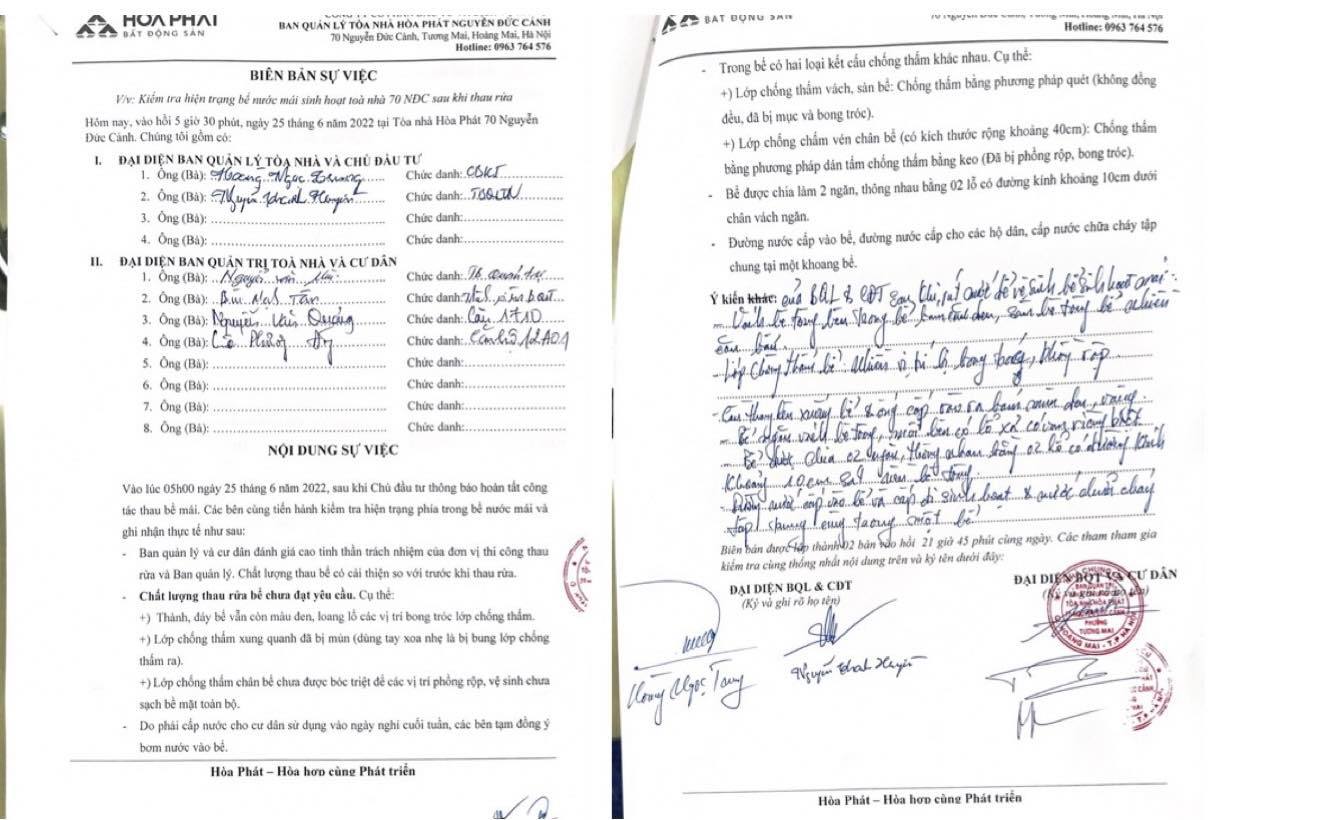 HÒA PHÁT
BẤT ĐỘNG SẢN
BAN QUẢN LÝ TÒA NHÀ HÒA PHÁT NGUYỄN ĐỨC CẢNH
70 Nguyễn Đức Cảnh, Tương Mai, Hoàng Mai, Hà Nội
Hotline: 0963 764 576
BIÊN BẢN SỰ VIỆC
V/v: Kiểm tra hiện trạng bể nước mái sinh hoạt toà nhà 70 NĐC sau khi thau rửa
Hôm nay, vào hồi 5 giờ 30 phút, ngày 25 tháng 6 năm 2022 tại Tòa nhà Hòa Phát 70 Nguyễn
Đức Cảnh. Chúng tôi gồm có:
I. ĐẠI DIỆN BAN QUẢN LÝ TÒA NHÀ VÀ CHỦ ĐẦU TƯ
1. Ông (Bà): Hoàng Ngọc Chức danh: CBKT
2. Ông (Bà): Nguyễn Thanh Huyền Chức danh: TBQLTN
3. Ông (Bà): Chức danh:
4. Ông (Bà): Chức danh:
II. ĐẠI DIỆN BAN QUẢN TRỊ TOÀ NHÀ VÀ CƯ DÂN
1. Ông (Bà): Nguyễn Văn Chức danh: TB quản trị
2. Ông (Bà): Chức danh:
3. Ông (Bà): Nguyễn Văn Quảng Chức danh: Căn 1710
4. Ông (Bà): Chức danh: Căn hộ 12A01
5. Ông (Bà): Chức danh:
6. Ông (Bà): Chức danh:
7. Ông (Bà): Chức danh:
8. Ông (Bà): Chức danh:
NỘI DUNG SỰ VIỆC
Vào lúc 05h00 ngày 25 tháng 6 năm 2022, sau khi Chủ đầu tư thông báo hoàn tất công
tác thau bể mái. Các bên cùng tiến hành kiểm tra hiện trạng phía trong bể nước mái và
ghi nhận thực tế như sau:
- Ban quản lý và cư dân đánh giá cao tinh thần trách nhiệm của đơn vị thi công thau
rửa và Ban quản lý. Chất lượng thau bể có cải thiện so với trước khi thau rửa.
- Chất lượng thau rửa bể chưa đạt yêu cầu. Cụ thể:
+) Thành, đáy bể vẫn còn màu đen, loang lổ các vị trí bong tróc lớp chống thấm.
+) Lớp chống thấm xung quanh đã bị mủn (dùng tay xoa nhẹ là bị bung lớp chống
thấm ra).
+) Lớp chống thấm chân bể chưa được bóc triệt để các vị trí phồng rộp, vệ sinh chưa
sạch bề mặt toàn bộ.
- Do phải cấp nước cho cư dân sử dụng vào ngày nghỉ cuối tuần, các bên tạm đồng ý
bơm nước vào bể.
Hòa Phát – Hòa hợp cùng Phát triển
BẤT ĐỘNG SẢN
Hotline: 0963 764 576
- Trong bể có hai loại kết cấu chống thấm khác nhau. Cụ thể:
+) Lớp chống thấm vách, sàn bể: Chống thấm bằng phương pháp quét (không đồng
đều, đã bị mục và bong tróc).
+) Lớp chống chấm vén chân bể (có kích thước rộng khoảng 40cm): Chống thấm
bằng phương pháp dán tấm chống thấm bằng keo (Đã bị phồng rộp, bong tróc).
- Bể được chia làm 2 ngăn, thông nhau bằng 02 lỗ có đường kính khoảng 10cm dưới
chân vách ngăn.
- Đường nước cấp vào bể, đường nước cấp cho các hộ dân, cấp nước chữa cháy tập
chung tại một khoang bể.
Ý kiến khác: của BQL & CĐT sau khi rút nước để vệ sinh bể sinh hoạt mái:
- bê tông bên trong bể đen, sàn bê tông bể nhiều
cặn bẩn.
- Lớp chống thấm bể: nhiều vị trí bị bong tróc, phồng rộp
- Cầu thang lên xuống bể & ống cấp bám màu đen, vàng.
- Bể ngăn vách bê tông, mỗi bên có lỗ xả có van riêng biệt
- Bể được chia 02 ngăn, thông nhau bằng 02 lỗ có đường kính
khoảng 10cm sát bê tông.
- Đường nước cấp vào bể và cấp đi sinh hoạt & nước chữa cháy
tập chung cùng trong một bể
Biên bản được lập thành 02 bản vào hồi 21 giờ 45 phút cùng ngày. Các tham tham gia
kiểm tra cùng thống nhất nội dung trên và ký tên dưới đây:
ĐẠI DIỆN BQL & CĐT ĐẠI DIỆN BQT VÀ CƯ DÂN
(Ký và ghi rõ họ tên)
Nguyễn Thanh Huyền
Hoàng Ngọc
Hòa Phát – Hòa hợp cùng Phát triển